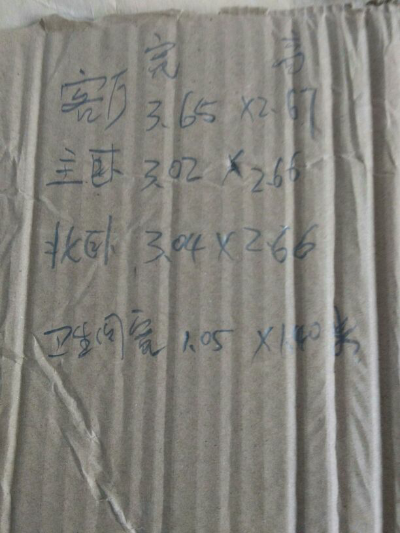 宽 高
客厅 3.65×2.67
主卧 3.02×2.66
北卧 3.04×2.66
卫生间宽 1.05×1.40米